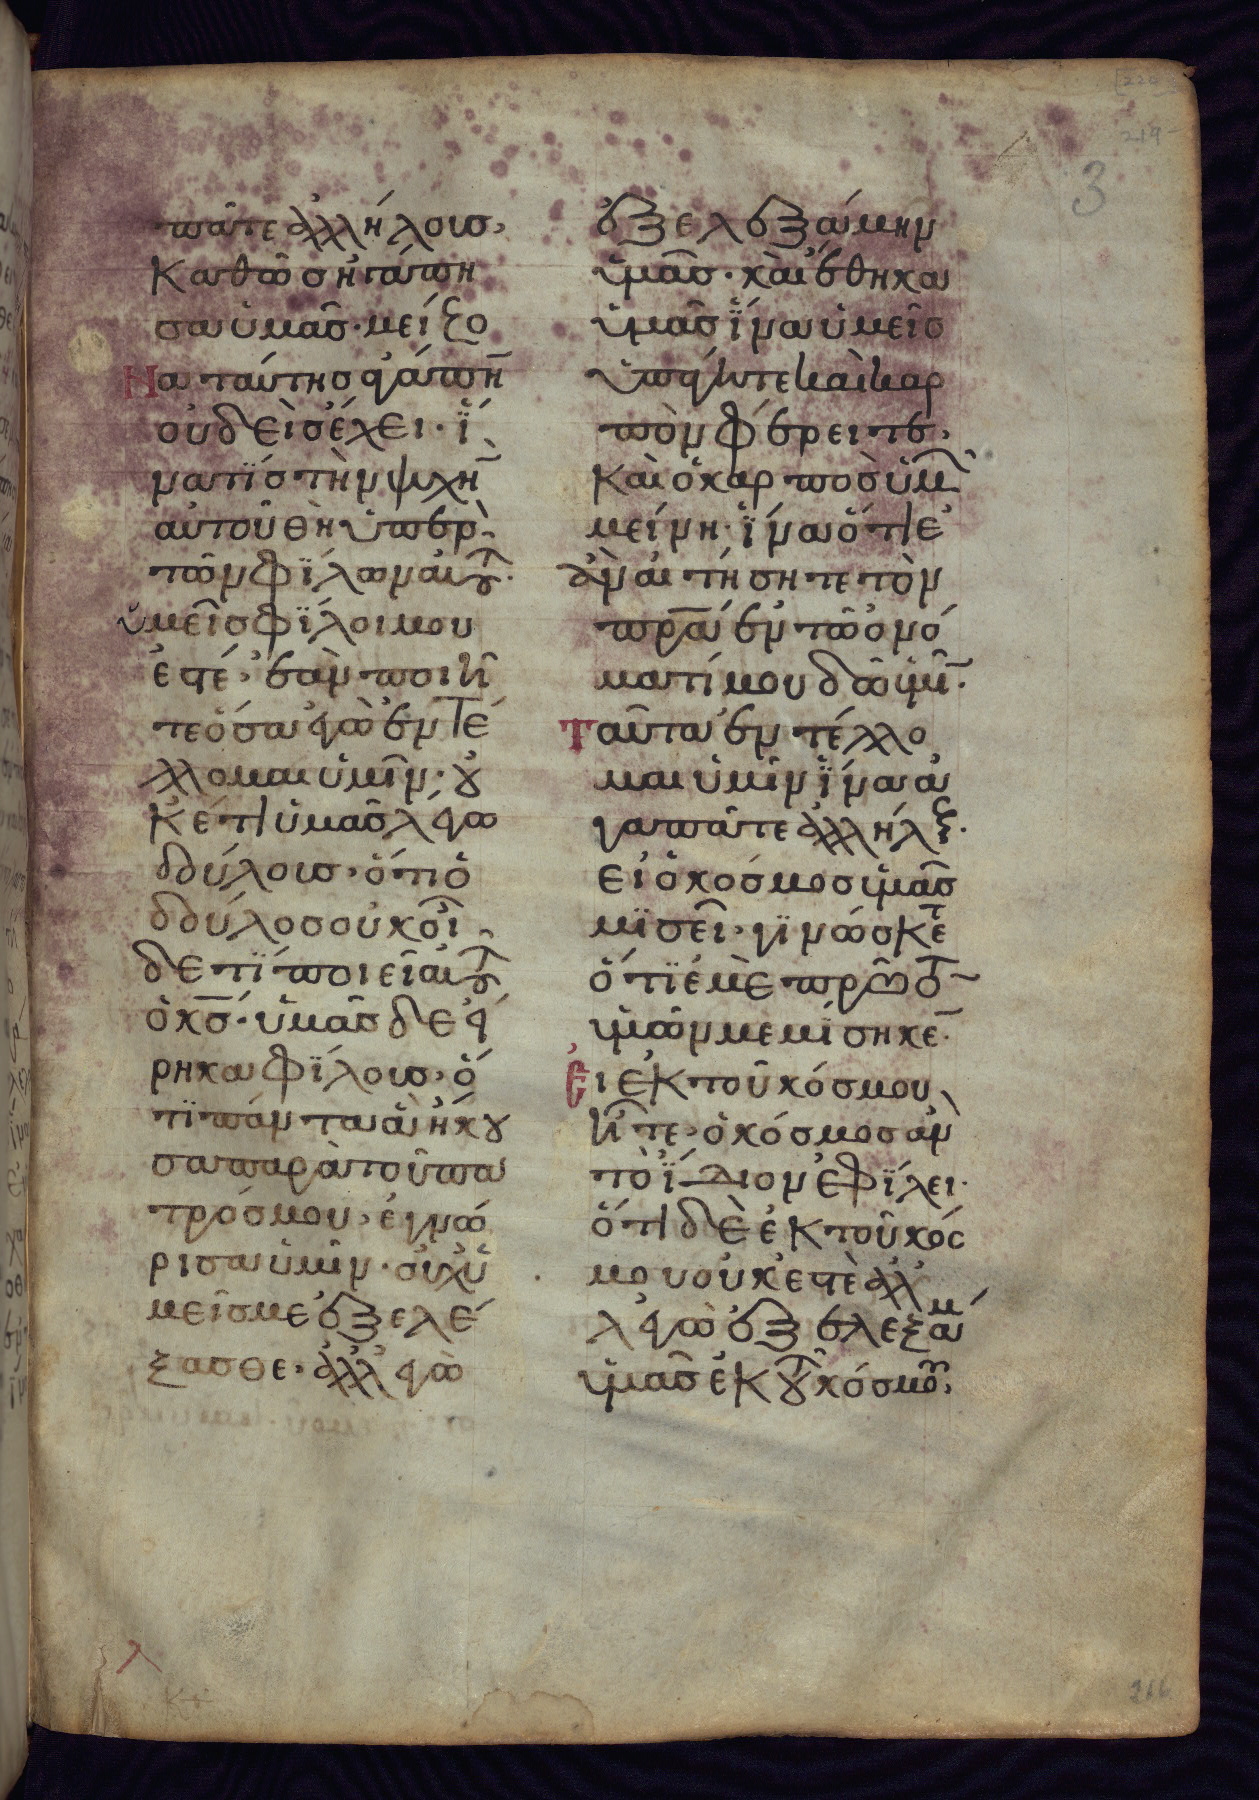 πᾶτε ἀλλήλους,
Καθὼς ἠγάπη
σα ὑμᾶς. μείζο
Να ταύτης ἀγάπη̅
οὐδεὶς ἔχει. ἵ
να τὶς τὴν ψυχη̅
αὐτοῦ θῆ ὑπὲρ
τῶν φίλων αυτ̅ȣ.
ὑμεῖς φίλοι μου
ἐστέ, ἐὰν ποιῆ
τε ὅσα ἐγὼ ἐντέ
λλομαι ὑμῖν. ȣ
κέτι ὑμᾶς λέγω
δούλους, ὅτι ὁ
δοῦλος οὐκ οἶ
δε τί ποιεῖ αυτ̅ȣ
ὁ κ̅ς. ὑμᾶς δὲ εἴ
ρηκα φίλους, ὅ
τι πάντα ἃ ἤκȣ
σα παρὰ τοῦ πα
τρός μου, ἐγνώ
ρισα ὑμῖν. οὐχ ὑ
μεῖς με ἐξελέ
ξασθε, ἀλλ' ἐγὼ
ἐξελεξάμην
ὑμᾶς. καὶ ἔθηκα
ὑμᾶς ἵνα ὑμεῖς
ὑπάγητε καὶ καρ
πὸν φέρειτε,
καὶ ὁ καρπὸς ὑμῶ
μείνη. ἵνα ὅτι ἐ
ὰν αἰτήσητε τὸν
π̅ρ̅α ἐν τῶ ὀνό
ματί μου δῶ ὑμῖ̅.
Ταῦτα ἐντέλλο
μαι ὑμῖν ἵνα ἀ
γαπᾶτε ἀλλήλȣς.
εἰ ὁ κόσμος ὑμᾶς
μισεῖ, γινώσκετ
ὅτι ἐμὲ πρῶτο̅
ὑμῶν μεμίσηκε̅.
Εἰ ἐκ τοῦ κόσμου
ἦτε, ὁ κόσμος ἂν
τὸ ἴδιον ἐφίλει.
ὅτι δὲ ἐκ τοῦ κόσ
μου οὐκ ἐστὲ ἀλ
λ' ἐγὼ ἐξελεξάμ
ὑμᾶς ἐκ τȣ κόσμου,
λ
3
219
216